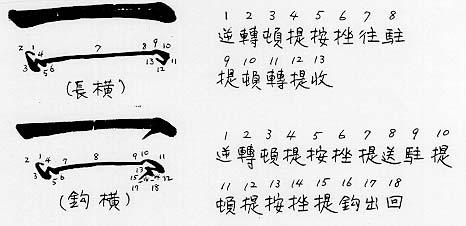 1 2 3 4 5 6 7 8
逆轉頓提按挫往駐
9 10 11 12 13
提頓轉提收
2 1 7 8 9 10
3 4 5 6 13 12 11
(長橫)
1 2 3 4 5 6 7 8 9 10
逆轉頓提按挫提送駐提
11 12 13 14 15 16 17 18
頓提按挫提鈎出回
2 1 4 7 8 9 10 11
3 5 6 13 12
15 14
17 16 18
(鈎橫)